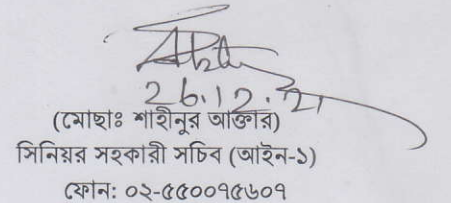 26.12.21
(মোছাঃ শাহীনুর আক্তার)
সিনিয়র সহকারী সচিব (আইন-১)
ফোন: ০২-৫৫০০৭৫৬০৭